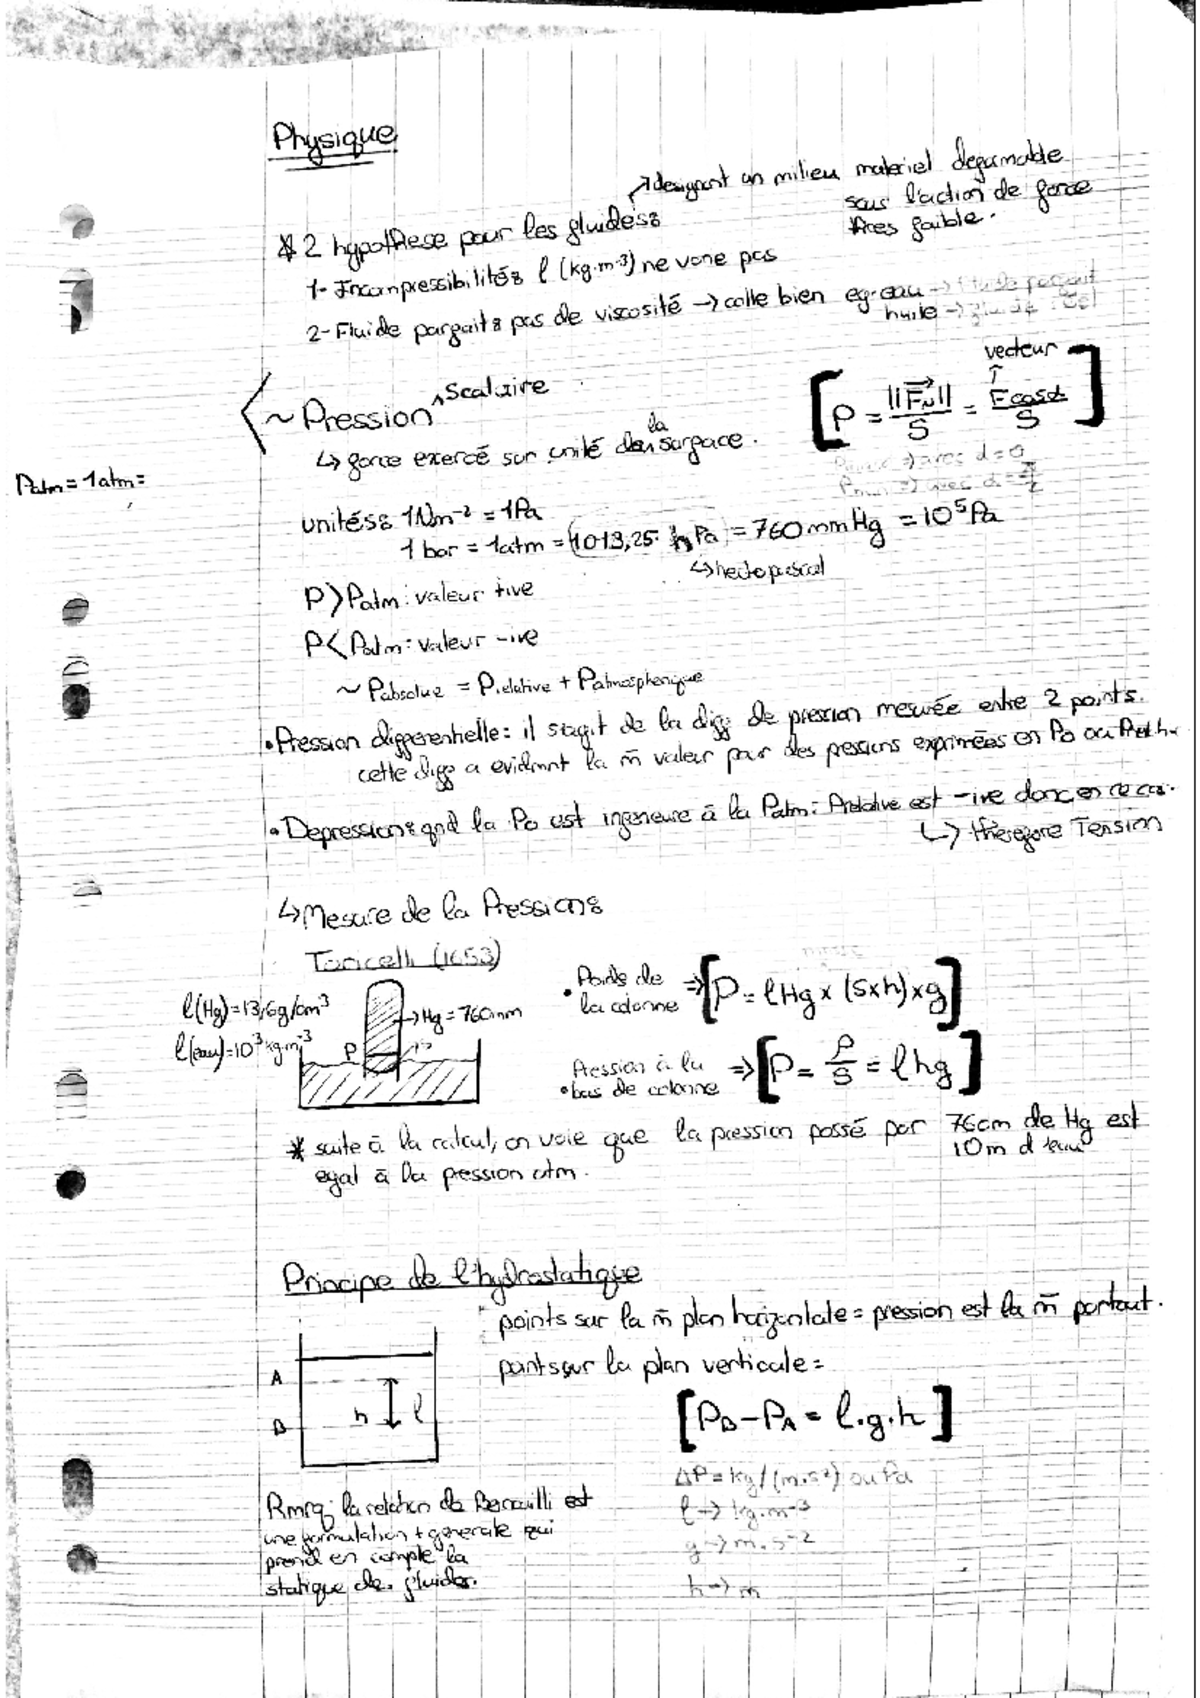 Physique
→ designant un milieu materiel deformable
sous l'action de force
tres faible.
* 2 hypothese pour les fluides:
1- Incompressibilités: ρ (kg.m-3) ne varie pas
2- Fluide parfait: pas de viscosité → colle bien eg. eau → fluide parfait
huile →
~ Pression → Scalaire
vecteur
[P = ||F_N|| / S = F cos α / S]
↳ force exercé sur unité de la surface.
avec α = 0
avec α = π/2
Patm = 1atm =
unités: 1N.m-2 = 1Pa
1 bar = 1atm = (1013,25 hPa) = 760mmHg = 10^5 Pa
↳ hectopascal
P > Patm: valeur +ive
P < Patm: valeur -ive
~ Pabsolue = P.relative + Patmospherique
• Pression differentielle: il s'agit de la diff de pression mesurée entre 2 points.
cette diff a evidmnt la m̄ valeur pour des pressions exprimées en Po ou
• Depression: qnd la Po est inferieure à la Patm: Prelative est -ive donc en ce cas.
↳ therefore Tension
↳ Mesure de la Pression:
Toricelli (1653)
ρ(Hg) = 13,6g/cm3
ρ(eau) = 10^3 kg.m-3
→ Hg = 760mm
P
• Poids de
la colonne ⇒ [P = ρHg x (S x h) x g]
Pression à la
• bas de colonne ⇒ [P = P/S = ρhg]
* suite à la calcul, on voie que la pression possé par 76cm de Hg est
10m d'eau
egal à la pression atm.
Principe de l'hydrostatique
points sur la m̄ plan horizontale = pression est la m̄ partout.
points sur la plan verticale =
A
B
h
ρ
[P_B - P_A = ρ.g.h]
ΔP = kg/(m.s2) ou Pa
ρ → kg.m-3
g → m.s-2
h → m
Rmrq: la relation de Bernouilli est
une formulation + generale qui
prend en compte la
statique de fluides.